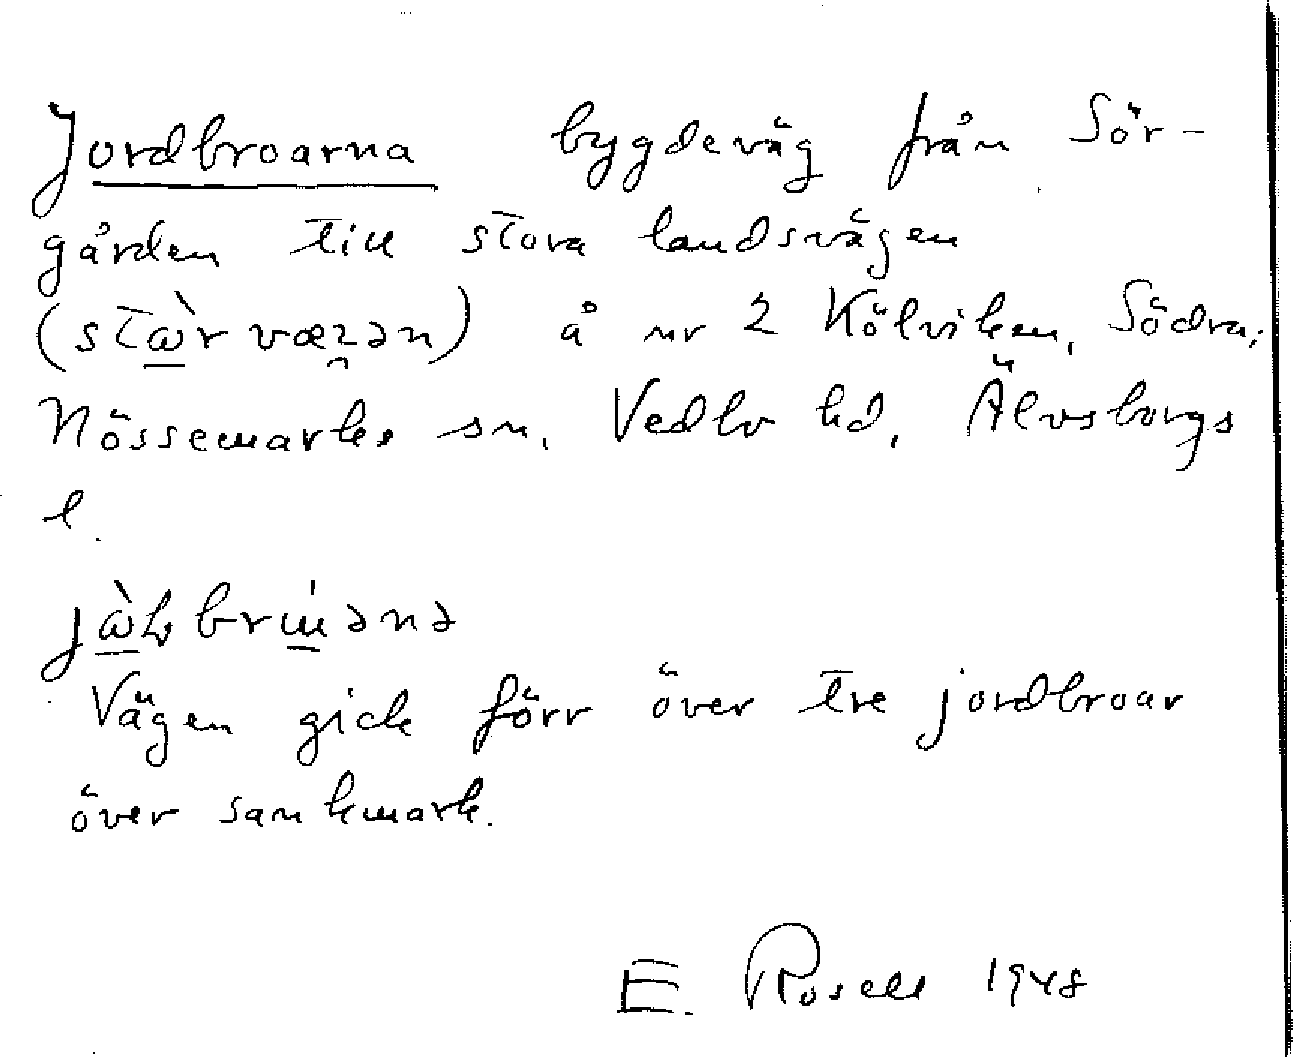 Jordbroarna bygdeväg från Sör-
gården till stora landsvägen
å nr 2 Kölviken, Södra,
Nössemarks sn, Vedbo hd, Älvsborgs
l.
Vägen gick förr över tre jordbroar
över sankmark.
E. Rosell 1948